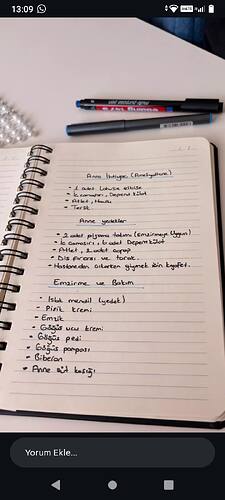 13:09
Anne İhtiyaç (Ameliyathane)
- 1 adet Lohusa elbise
- İç çamaşırı, Depend külot
- Atlet, Havlu
- Terlik
Anne yedekler
- 2 adet pijama takımı (Emzirmeye Uygun)
- İç çamaşırı, 6 adet Depend külot
- Atlet, 2 adet çorap
- Diş fırçası ve tarak.
- Hastaneden çıkarken giymek için kıyafet.
Emzirme ve Bakım
- Islak mendil (yedek)
- Pişik kremi
- Emzik
- Göğüs ucu kremi
- Göğüs pedi
- Göğüs pompası
- Biberon
- Anne süt kaşığı
Yorum Ekle...